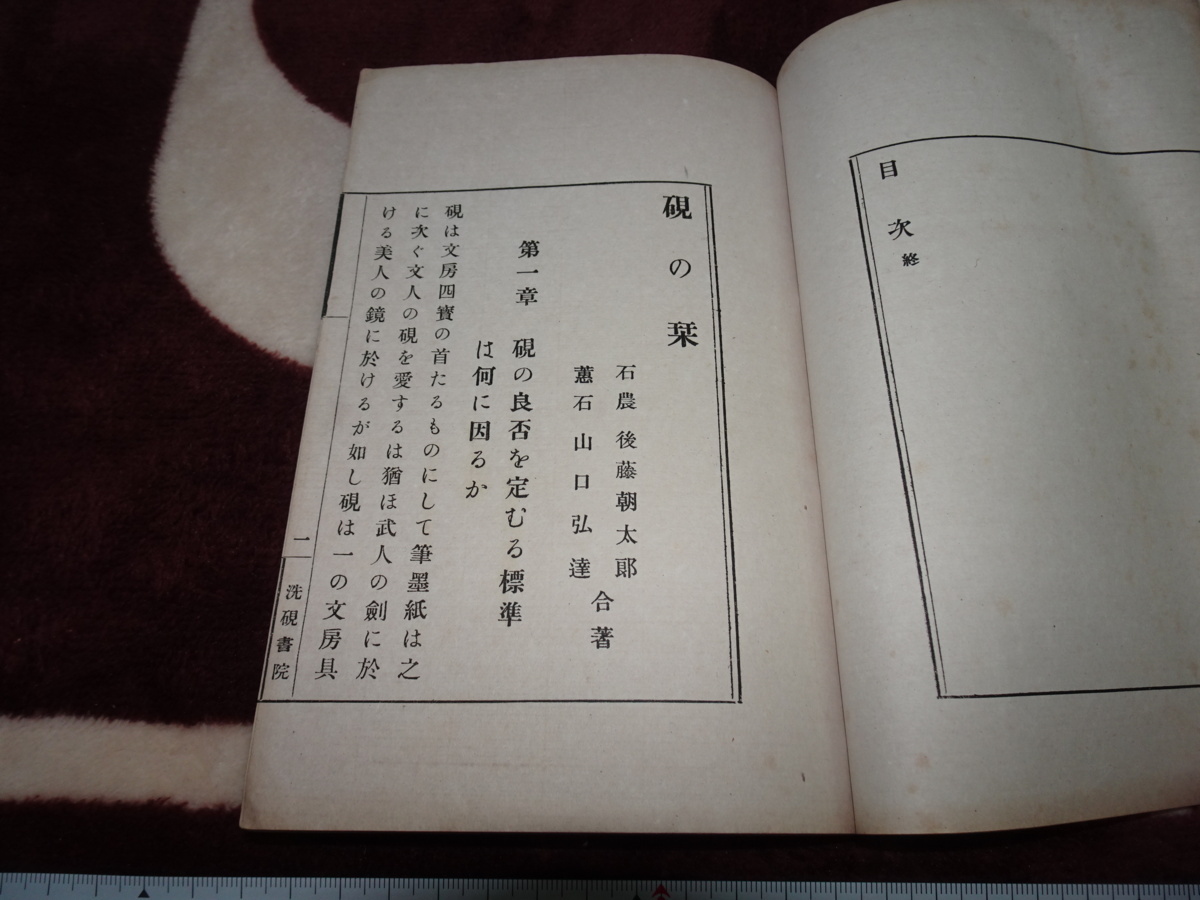 目次終
硯の栞
石農 後藤朝太郎
蕙石 山口弘達
合著
第一章 硯の良否を定むる標準
は何に因るか
硯は文房四寶の首たるものにして筆墨紙は之
に次ぐ文人の硯を愛するは猶ほ武人の劍に於
ける美人の鏡に於けるが如し硯は一の文房具
一
洗硯書院